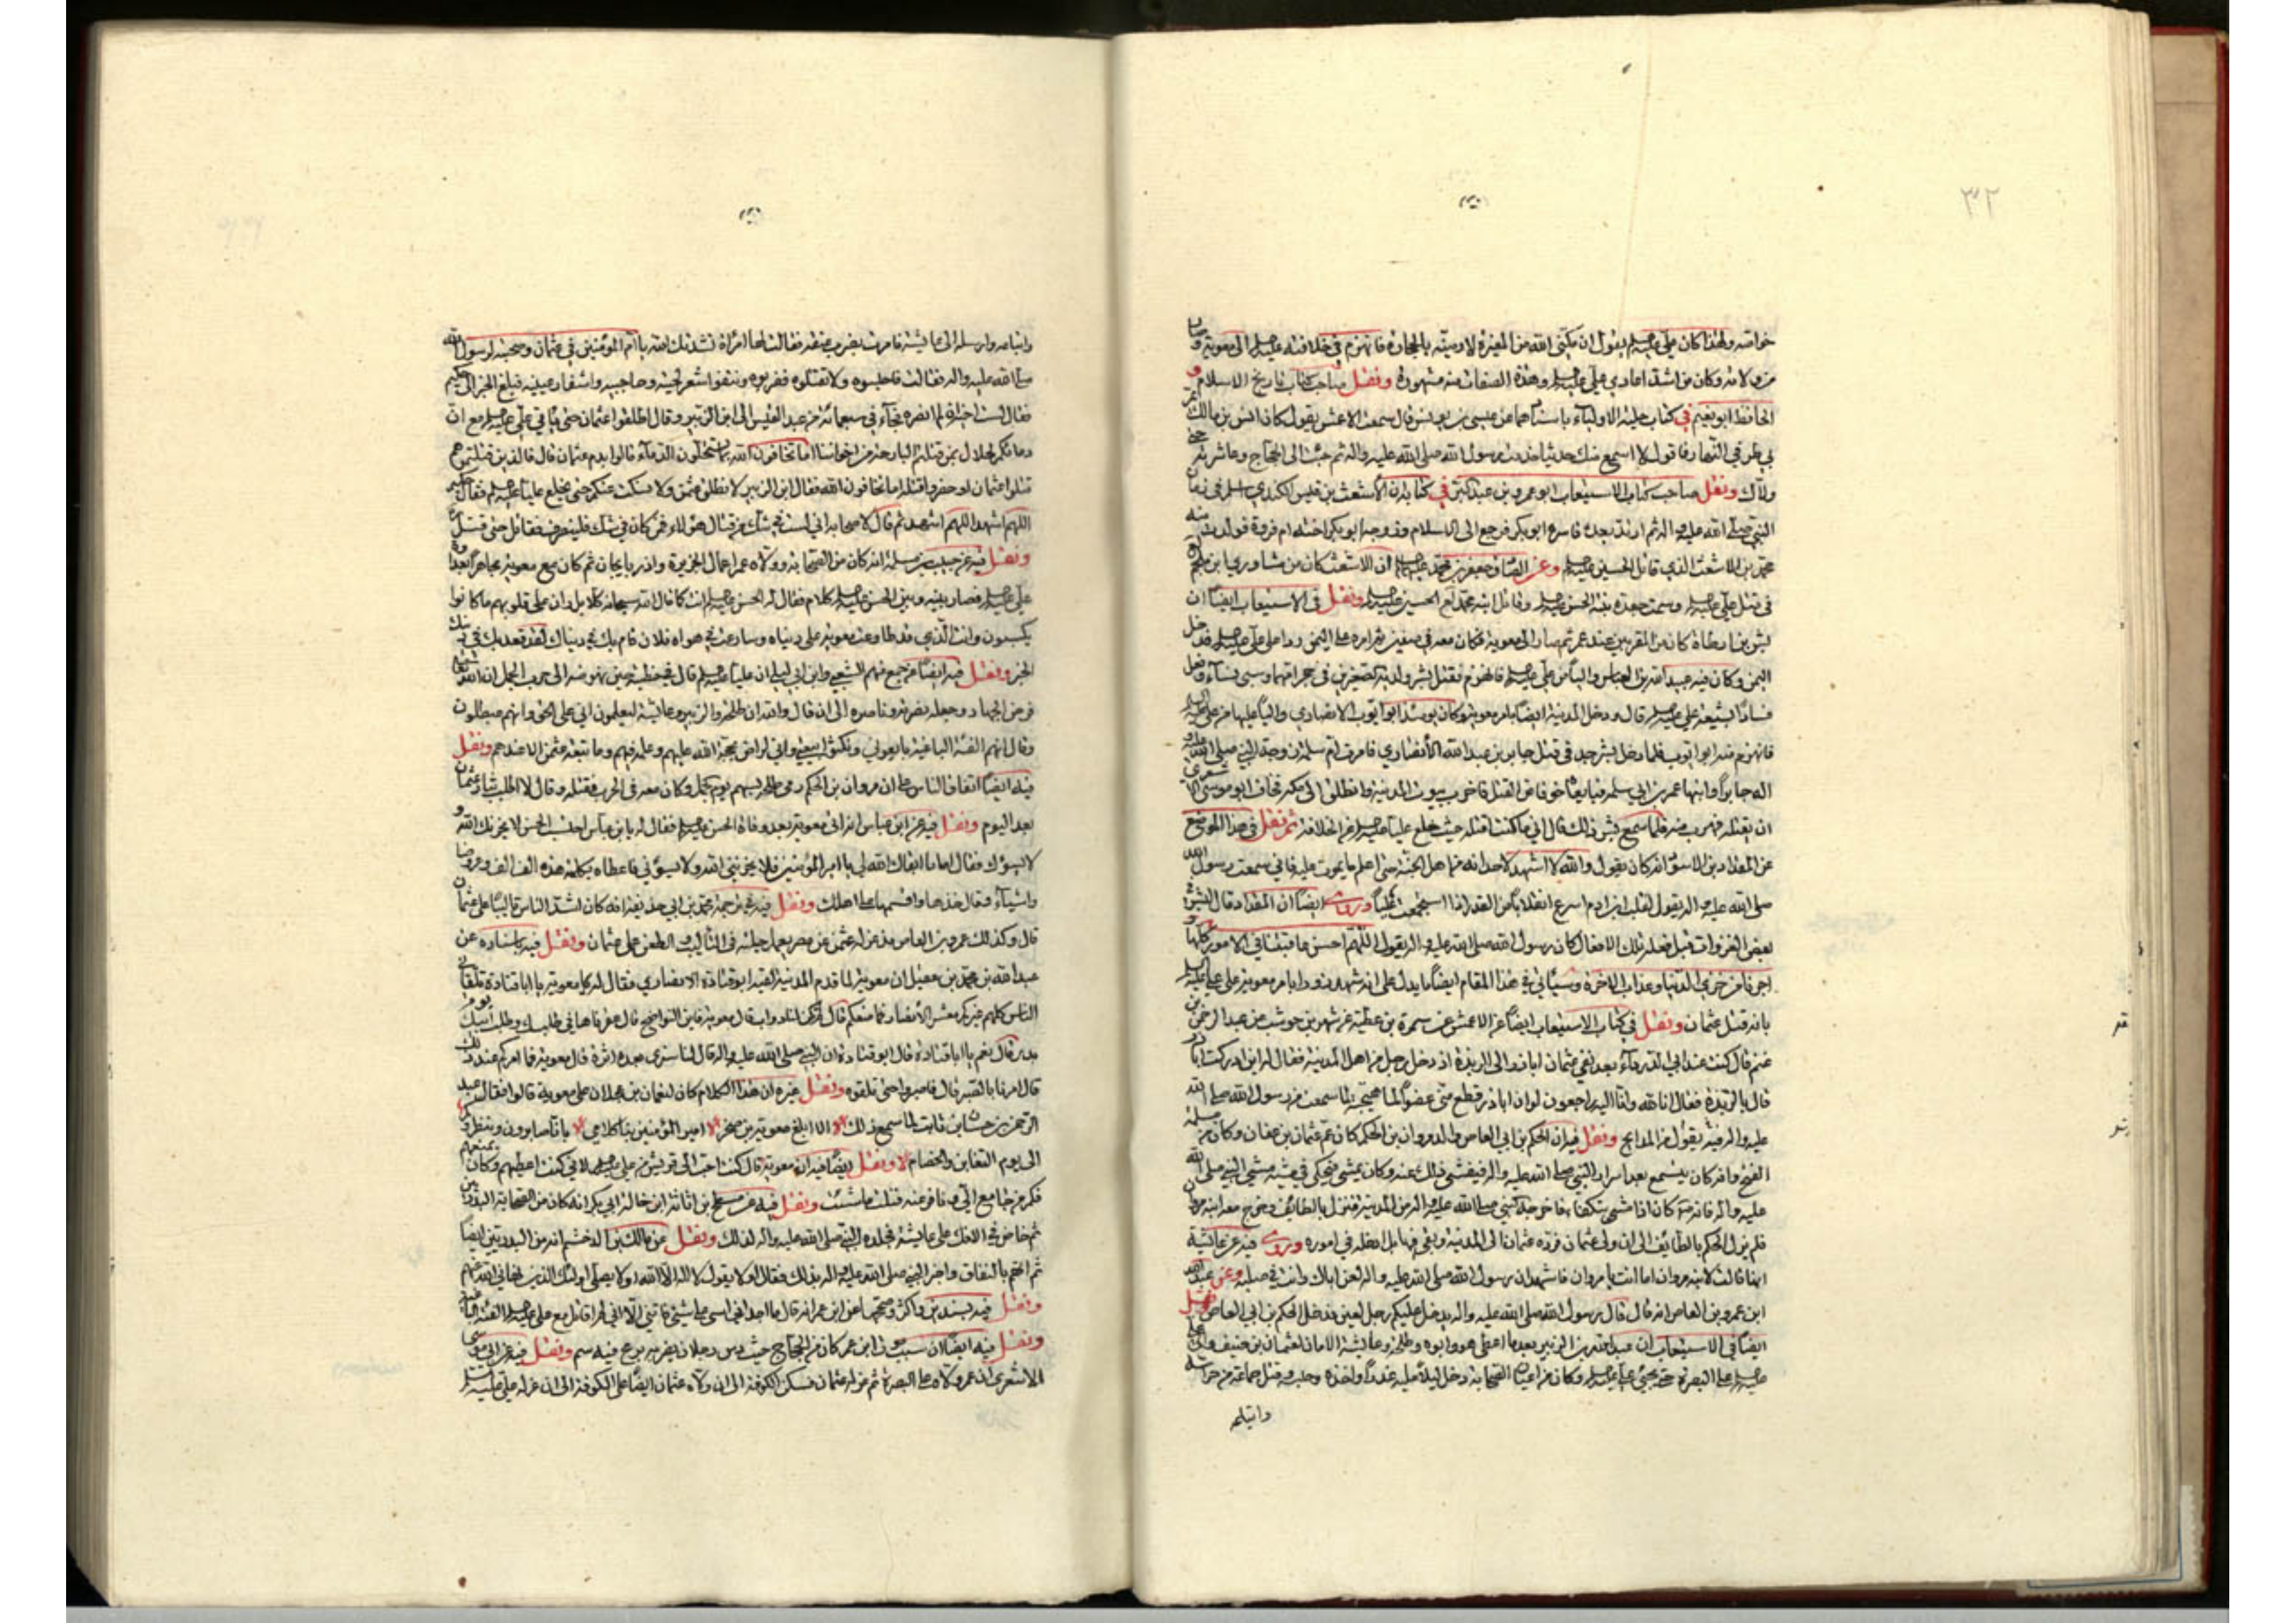 ٣٢
خواصه ولهذا كان علي عليه السلم يقول ان مكنني الله من المغيرة لارمينه بالحجارة فانهزم في خلافته عليه السلم الى معوية وصار
من ولاته وكان من اشد اعادي علي عليه السلم وهذه الصفات منه مشهورة ونقل صاحب كتاب تاريخ الاسلام و
الحافظ ابو نعيم في كتاب حلية الاولياء باسنادهما عن عيسى بن يونس قال سمعت الاعمش يقول كان انس بن مالك
بي طرفي النهار فاقول لا اسمع منك حديثا خدمت رسول الله صلى الله عليه واله ثم جئت الى الحجاج
ولاك ونقل صاحب كتاب الاستيعاب ابو عمرو بن عبد البر في كتابه ان الاشعث بن قيس الكندي اسلم في زمان
النبي صلى الله عليه واله ثم ارتد بعده فاسره ابو بكر فرجع الى الاسلام وزوجه ابو بكر اخته ام فروة فولدت منه
محمد بن الاشعث الذي قاتل الحسين عليه السلم وعن الصادق جعفر بن محمد عليهما السلم ان الاشعث كان من مشاوري ابن ملجم
في قتل علي عليه السلم وسمت جعدة بنته الحسن عليه السلم وقاتل ابنه محمد مع الحسين عليه السلم ونقل في الاستيعاب ايضا ان
بشر بن ارطاة كان من المقربين عند عمر ثم صار الى معوية فكان معه في صفين ثم امره على اليمن ردا على علي عليه السلم فدخل
اليمن وكان فيه عبيد الله بن العباس واليا من علي عليه السلم فانهزم فقتل بشر ولديه الصغيرين في حجر امهما وسبى نساء وقتل
فسادا لشيعة علي عليه السلم قال ودخل المدينة ايضا بامر معوية وكان يومئذ ابو ايوب الانصاري واليا عليها من علي عليه السلم
فانهزم منه ابو ايوب فلما دخل بشر جد في قتل جابر بن عبد الله الانصاري فامرت ام سلمة زوجة النبي صلى الله عليه
واله جابرا وابنها عمر بن ابي سلمة فبايعا خوفا من القتل فاخرب بيوت المدينة وانطلق الى مكة فخاف ابو موسى الاشعري
ان يقتله فهرب منه فلما سمع بشر ذلك قال اني ما كنت اقتله حيث خلع عليا عليه السلم من الخلافة ثم نقل في هذا الموضع
عن المقداد بن الاسود انه كان يقول والله لا اشهد لاحد انه من اهل الجنة حتى اعلم ما يموت عليه فاني سمعت رسول الله
صلى الله عليه واله يقول لقلب ابن ادم اسرع انقلابا من القدر اذا استجمعت غليا وروى ايضا ان المقداد قال
بعض الغزوات قبل فعله تلك الافعال كان رسول الله صلى الله عليه واله يقول اللهم احسن عاقبتنا في الامور كلها و
اجرنا من خزي الدنيا وعذاب الاخرة وسيأتي في هذا المقام ايضا ما يدل على انه شهد زورا بامر معوية على علي عليه السلم
بانه قتل عثمان ونقل في كتاب الاستيعاب ايضا عن الاعمش عن سمرة بن عطية عن شهر بن حوشب عن عبد الرحمن بن
غنم قال كنت عند ابي الدرداء بعد نفي عثمان اباذر الى الربذة اذ دخل رجل من اهل المدينة فقال له اين ادركت اباذر
قال بالربذة فقال انا لله وانا اليه راجعون لو ان اباذر قطع مني عضوا لما هجته لما سمعت من رسول الله صلى الله
عليه واله فيه يقول من المدايح ونقل فيه ان الحكم بن ابي العاص والد مروان بن الحكم كان عم عثمان بن عفان وكان من مسلمة
الفتح وانه كان يستمع بعد اسرار النبي صلى الله عليه واله فيفشي ذلك عنه وكان يمشي فيحكي في مشيه مشي النبي صلى الله
عليه واله فانه كان اذا مشى يتكفا فاخرجه النبي صلى الله عليه واله من المدينة فنزل بالطائف وخرج معه ابنه مروان
فلم يزل الحكم بالطائف الى ان ولي عثمان فرده عثمان الى المدينة وبقي فيها بل ادخله في اموره وروى فيه عن عائشة
انها قالت لابنه مروان اما انت يا مروان فاشهد ان رسول الله صلى الله عليه واله لعن اباك وانت في صلبه وعن عبد الله
ابن عمرو بن العاص انه قال قال رسول الله صلى الله عليه واله يدخل عليكم رجل لعين فدخل الحكم بن ابي العاص ونقل
ايضا في الاستيعاب ان عبد الله بن الزبير بعد ما اعطى هو وابوه وطلحة وعائشة الامان لعثمان بن حنيف والي علي
عليه السلم على البصرة حتى يجيء علي عليه السلم وكان من اعيان الصحابة دخل ليلا عليه غدرا واخذه وحبسه وقتل جماعة من حراسه
واتباعه
واتباعه وارسله الى عائشة فامرت بضرب عنقه فقالت لها امراة نشدتك الله يا ام المؤمنين في عثمان وصحبته لرسول الله
صلى الله عليه واله فقالت فاحبسوه ولا تقتلوه فضربوه ونتفوا شعر لحيته وحاجبيه واشفار عينيه فبلغ الخبر الى حكيم
فقال لست اخاف لم انصره فجاء في سبعمائة من عبد القيس الى ابن الزبير وقال اطلقوا عثمان حتى ياتي علي عليه السلم مع ان
دمائكم لحلال بمن قتلتم البارحة من اخواننا اما تخافون الله بما تستحلون الدماء قالوا بدم عثمان قال فالذين قتلتموهم
قتلوا عثمان او حضروا قتله اما تخافون الله فقال ابن الزبير لا نطلق عنه ولا نسكت عنكم حتى يخلع عليا عليه السلم فقال حكيم
اللهم اشهد اللهم اشهد ثم قال لاصحابه اني لست في شك من قتال هؤلاء فمن كان في شك فلينصرف فقاتل حتى قتل
ونقل فيه عن حبيب بن مسلمة انه كان من الصحابة وولاه عمر اعمال الجزيرة واذربايجان ثم كان مع معوية
علي عليه السلم فصار بينه وبين الحسن عليه السلم كلام فقال له الحسن عليه السلم انت كما قال الله سبحانه كلا بل ران على قلوبهم ما كانوا
يكسبون وانت الذي قد طاوعت معوية على دنياه وسارعت في هواه فلان قام بك في دنياك لقد قعد بك في دينك
الخبر ونقل فيه ايضا عن جمع منهم الشعبي وابن ابي ليلى ان عليا عليه السلم قال في خطبته حين نهوضه الى حرب الجمل ان الله تعالى
فرض الجهاد وجعله نصرته وناصره الى ان قال والله ان طلحة والزبير وعائشة ليعلمون اني على الحق وانهم مبطلون
وقال انهم الفئة الباغية بايعوني ونكثوا بيعتي واني لراض بحجة الله عليهم وعلمه فيهم وما تبعة عثمن الا عندهم ونقل
فيه ايضا اتفاق الناس على ان مروان بن الحكم رمى طلحة بسهم يوم الجمل وكان معه في الحرب فقتله وقال لا اطلب بثار عثمان
بعد اليوم ونقل فيه عن ابن عباس انه اتى معوية بعد وفاة الحسن عليه السلم فقال له يا بن عباس احتسب الحسن لا يحزنك الله و
لا يسؤك فقال اما ما ابقاك الله لي يا امير المؤمنين فلا يحزنني الله ولا يسؤني فاعطاه بكلمته هذه الف الف وعروضا
واشياء وقال خذها واقسمها على اهلك ونقل فيه في ترجمة محمد بن ابي حذيفة انه كان اشد الناس تاليبا على عثمان
قال وكذلك عمرو بن العاص مذ عزله عثمن عن مصر يعمل حيلته في التاليب والطعن على عثمان ونقل فيه باسناده عن
عبد الله بن محمد بن عقيل ان معوية لما قدم المدينة لقيه ابو قتادة الانصاري فقال له معوية يا ابا قتادة تلقاني
الناس كلهم غيركم معشر الانصار فما منعكم قال لم يكن لنا دواب قال معوية فاين النواضح قال عقرناها في طلبك وطلب ابيك يوم
بدر قال نعم يا ابا قتادة قال ابو قتادة ان النبي صلى الله عليه واله قال لنا سترى بعده اثرة قال معوية فما امركم عند ذلك
قال امرنا بالصبر قال فاصبروا حتى تلقوه ونقل غيره ان هذا الكلام كان لنعمان بن عجلان على معوية قالوا فقال عبد
الرحمن بن حسان بن ثابت لما سمع ذلك الا ابلغ معوية بن صخر امير المؤمنين بنا كلامي بانا صابرون ومنظروكم
الى يوم التغابن والخصام ونقل ايضا فيه ان معوية قال كنت احب الى قريش من علي عليه السلم لاني كنت اعطيهم وكان يمنعهم
فكم من جامع الي ونافر عنه فنلت ما شئت ونقل فيه عن مسطح بن اثاثة ابن خالة ابي بكر انه كان من الصحابة البدريين
ثم خاض في الافك على عائشة فجلده النبي صلى الله عليه واله لذلك ونقل عن مالك بن الدخشم انه من البدريين ايضا
ثم اتهم بالنفاق واخبر النبي صلى الله عليه واله بذلك فقال اولا يقول لا اله الا الله اولا يصلي اولئك الذين نهاني الله عنهم
ونقل فيه بسندين واكثر وصححهما عن ابن عمر انه قال ما اجدني اسى على شيء فاتني الا اني لم اقاتل مع علي عليه السلم الفئة الباغية
ونقل فيه ايضا ان سبب موت ابن عمر كان من الحجاج حيث دس رجلا يضربه برمح فيه سم ونقل فيه عن ابي موسى
الاشعري ان عمر ولاه على البصرة ثم عزله عثمان فسكن الكوفة الى ان ولاه عثمان ايضا على الكوفة الى ان عزله علي عليه السلم